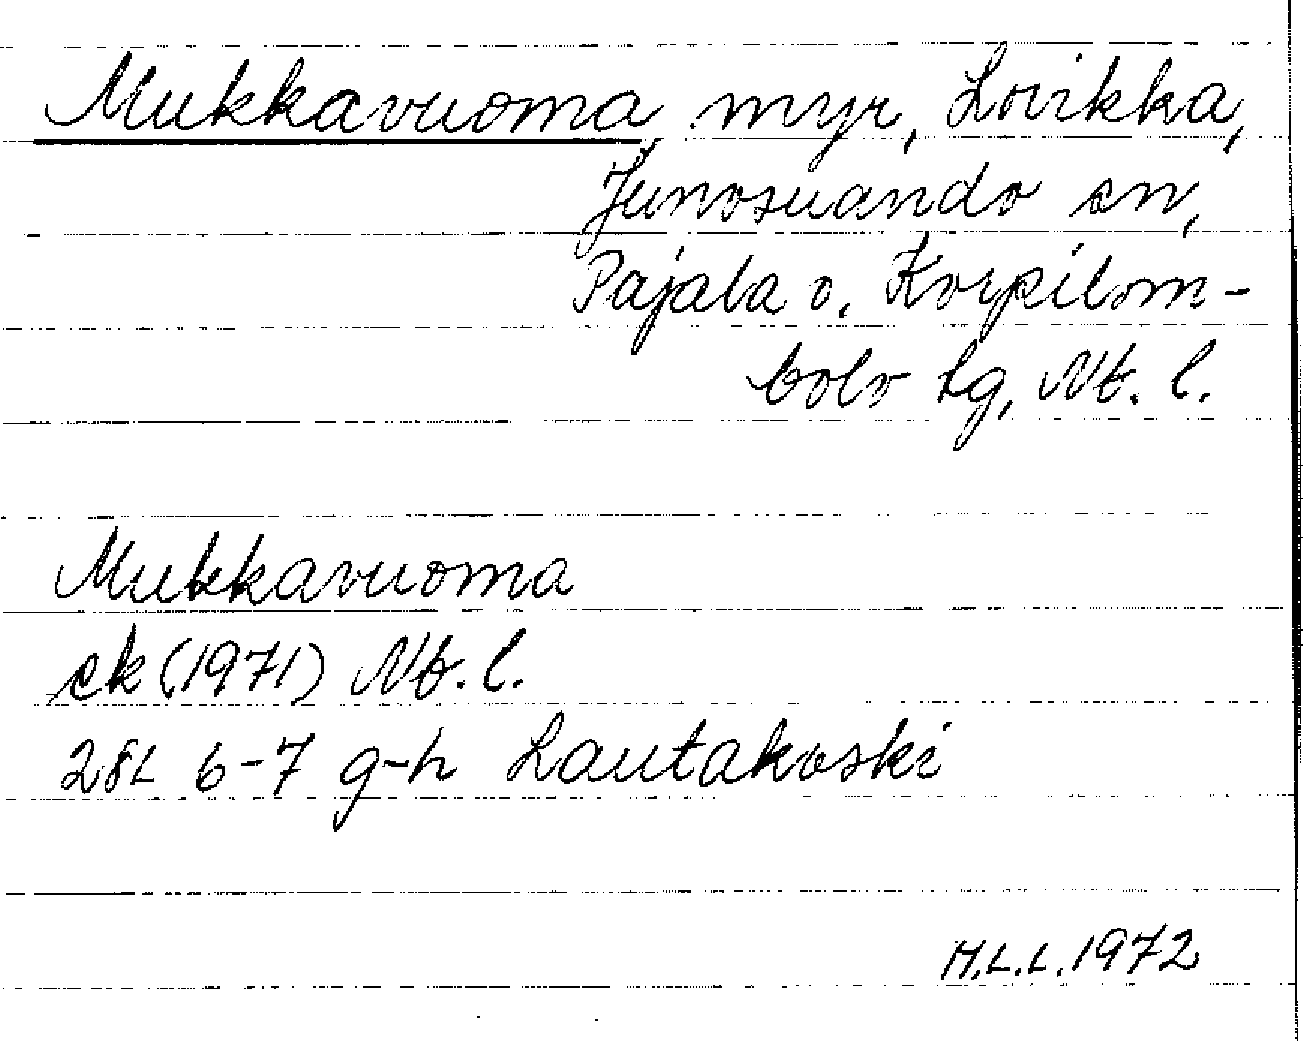 Mukkavuoma, myr, Lovikka,
Junosuando sn,
Pajala o. Korpilom-
bolo tg, Nb. l.
Mukkavuoma
ek (1971) Nb. l.
28L 6-7 g-h Lautakoski
M.L.L. 1972